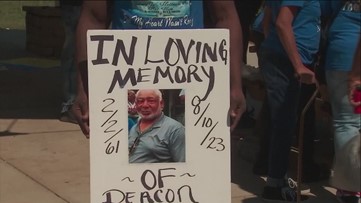 My Heart Won't Key
IN LOVING
MEMORY
2/2/61
8/10/23
~OF~
DEACON